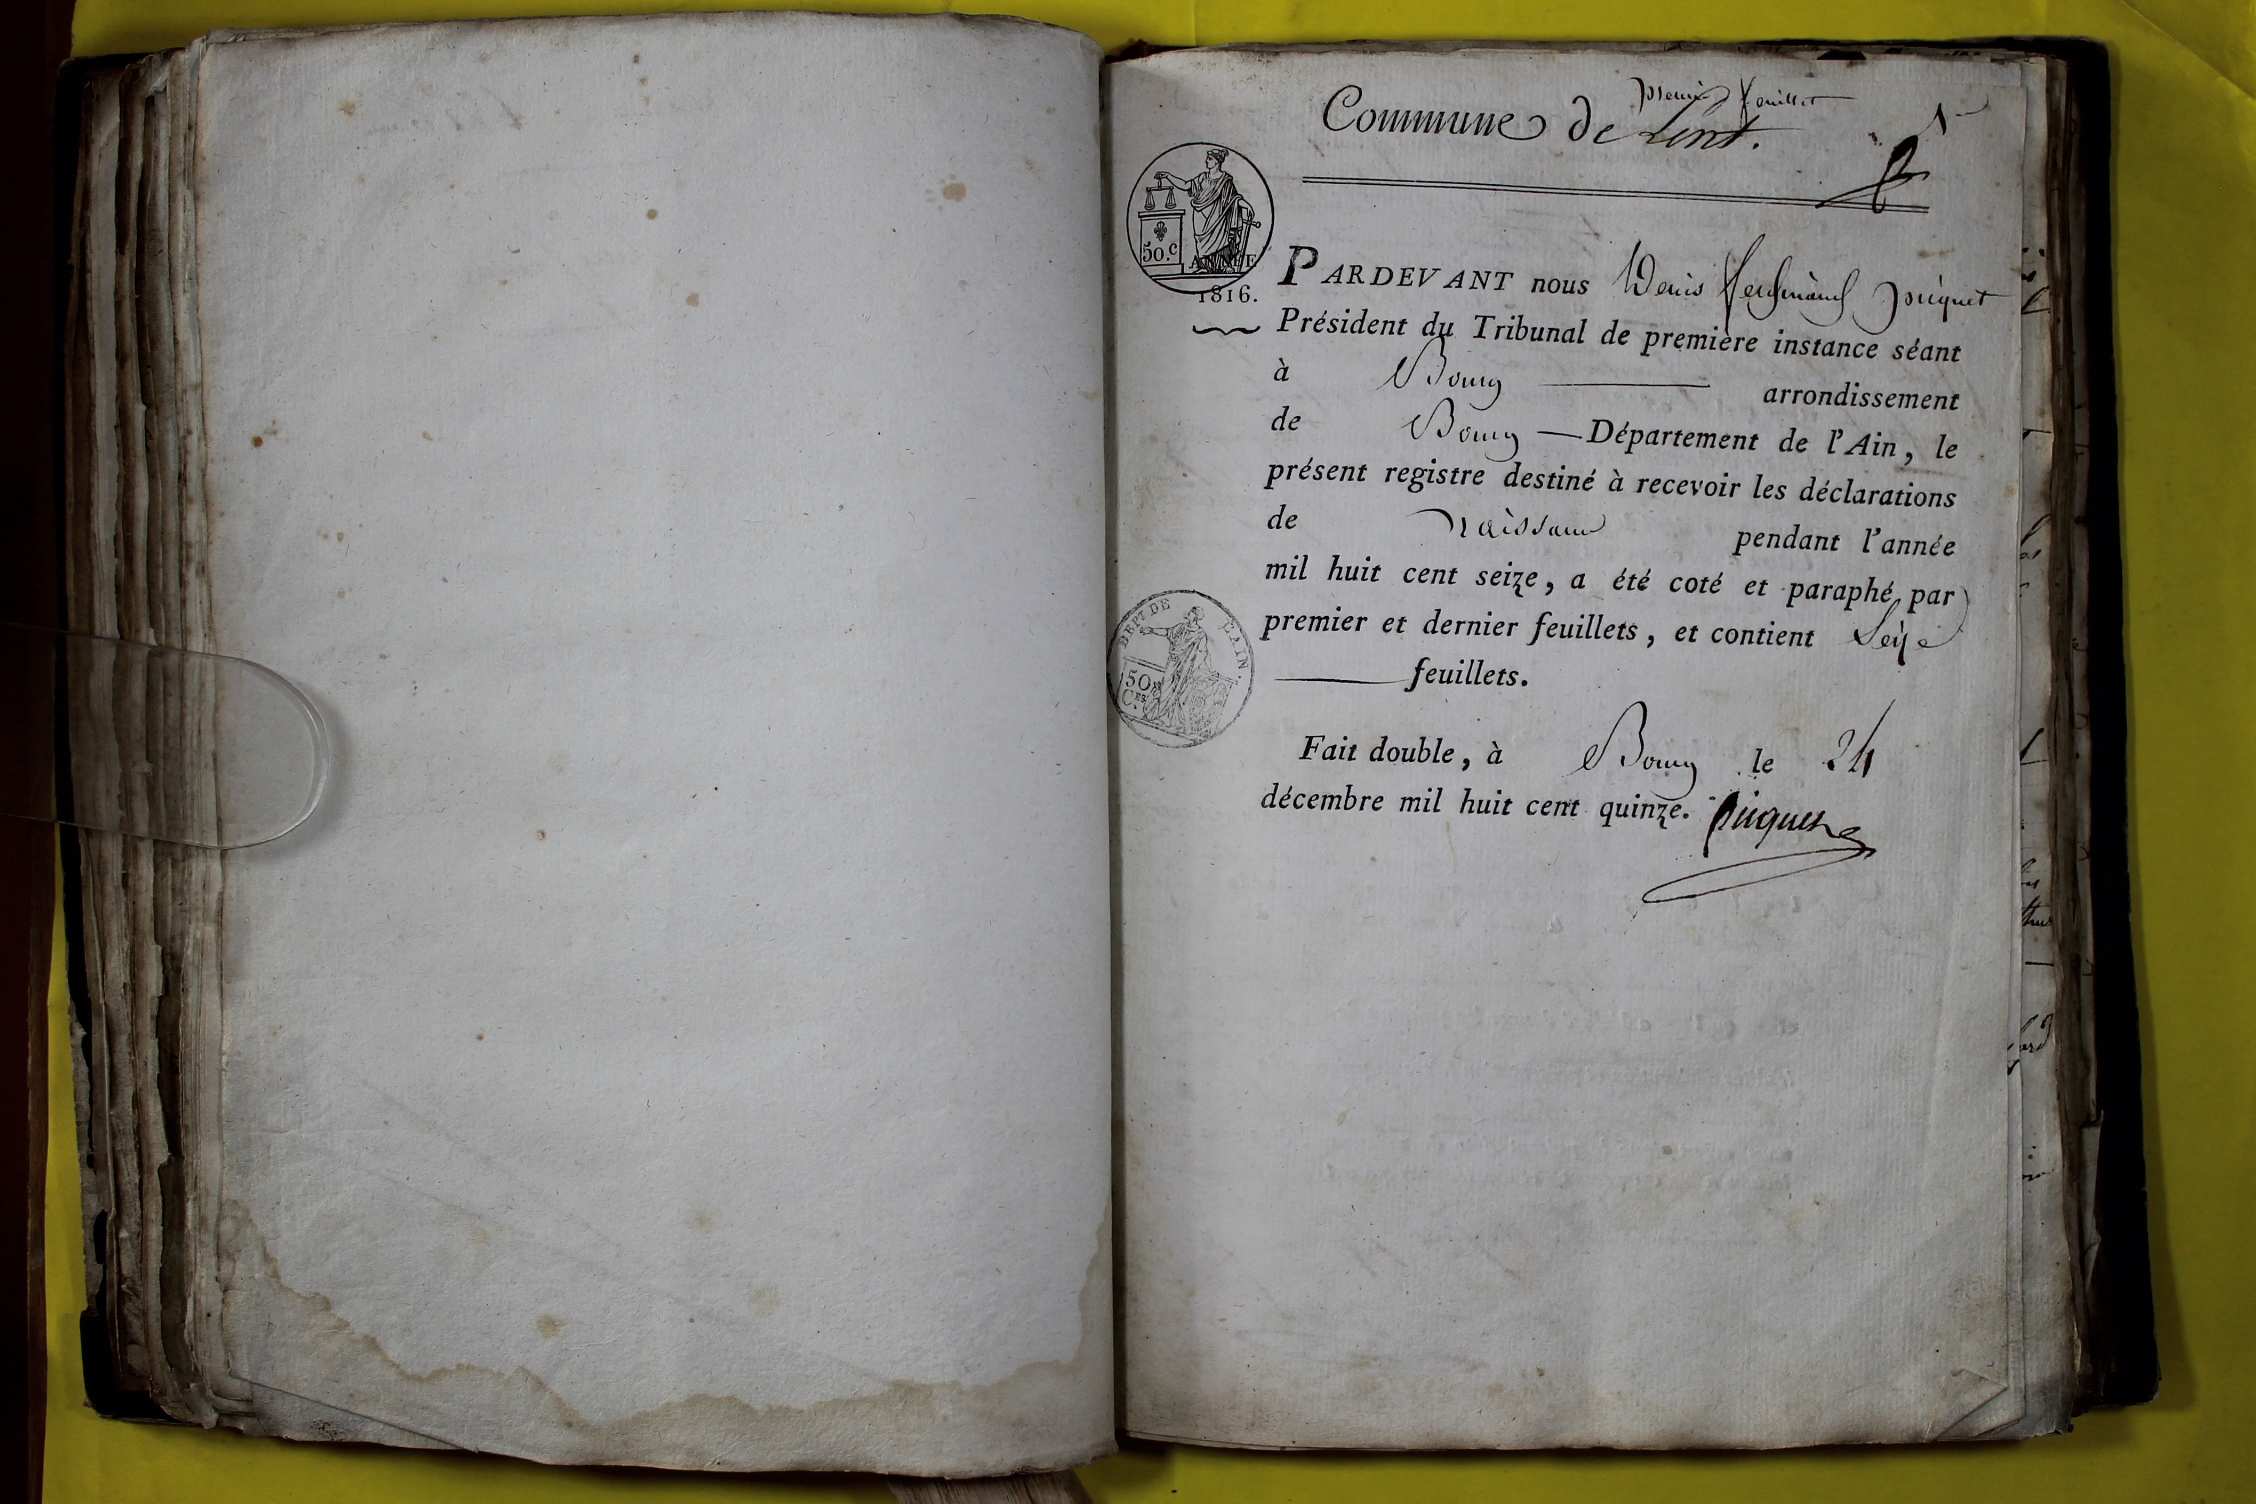 premier feuillet
Commune de Lent.
1
50.c
ANNÉE
1816.
PARDEVANT nous Denis Ferdinand Piquet
Président du Tribunal de première instance séant
à Bourg arrondissement
de Bourg — Département de l'Ain, le
présent registre destiné à recevoir les déclarations
de naissance pendant l'année
mil huit cent seize, a été coté et paraphé par
premier et dernier feuillets, et contient Seize
feuillets.
DEPT DE L'AIN.
50
Ces
Fait double, à Bourg le 24
décembre mil huit cent quinze. Piquet